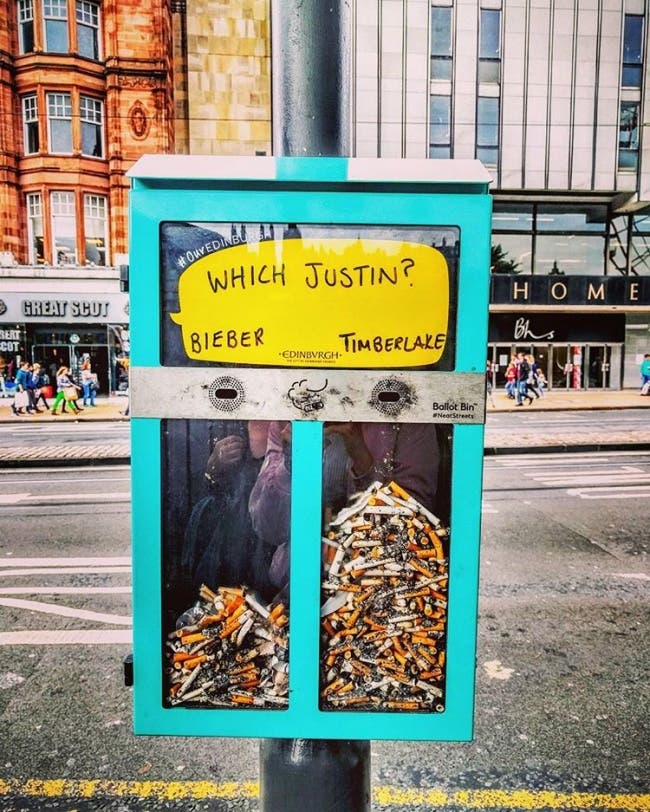 #OUREDINBURGH
WHICH JUSTIN?
BIEBER
TIMBERLAKE
·EDINBVRGH·
Ballot Bin
#NeatStreets
GREAT SCOT
HOME
Bhs